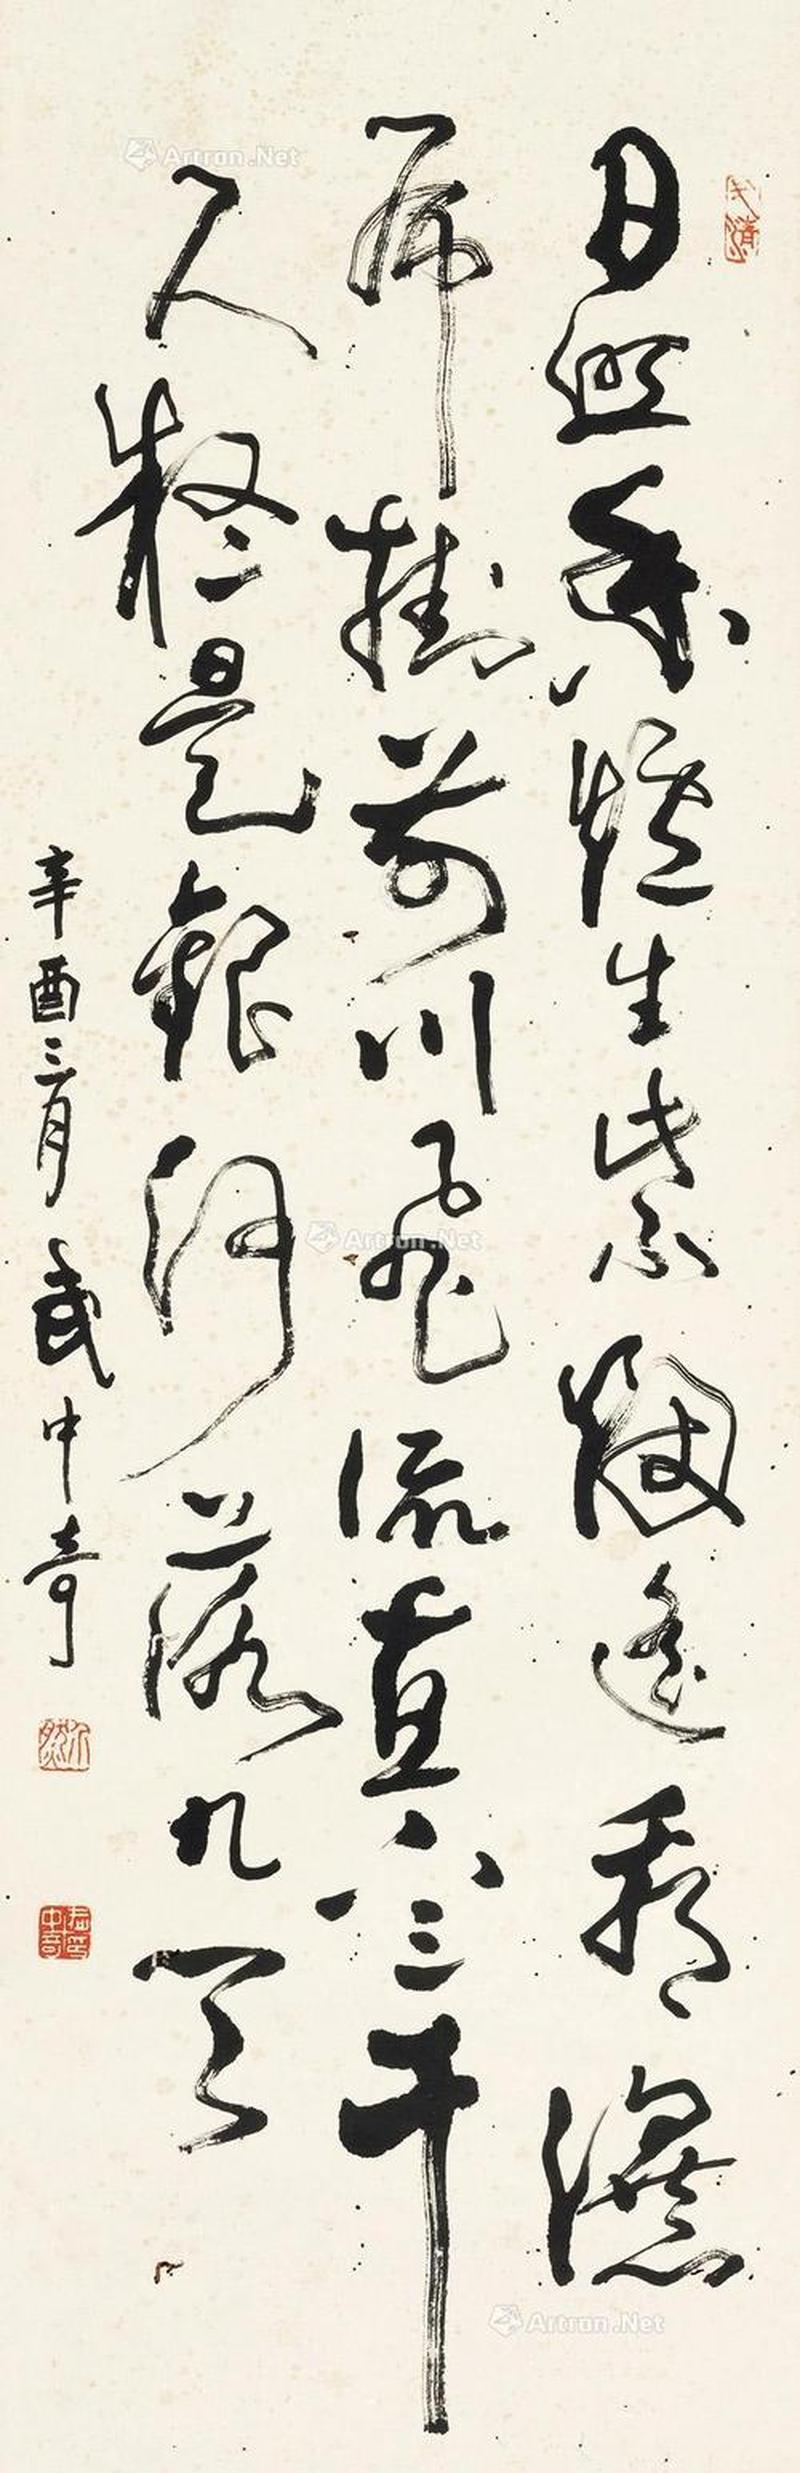 日照香炉生紫烟遥看瀑
布掛前川飞流直下三千
尺疑是銀河落九天
辛酉三月 武中奇
武中奇印
Artron.Net
Artron.Net
Artron.Net